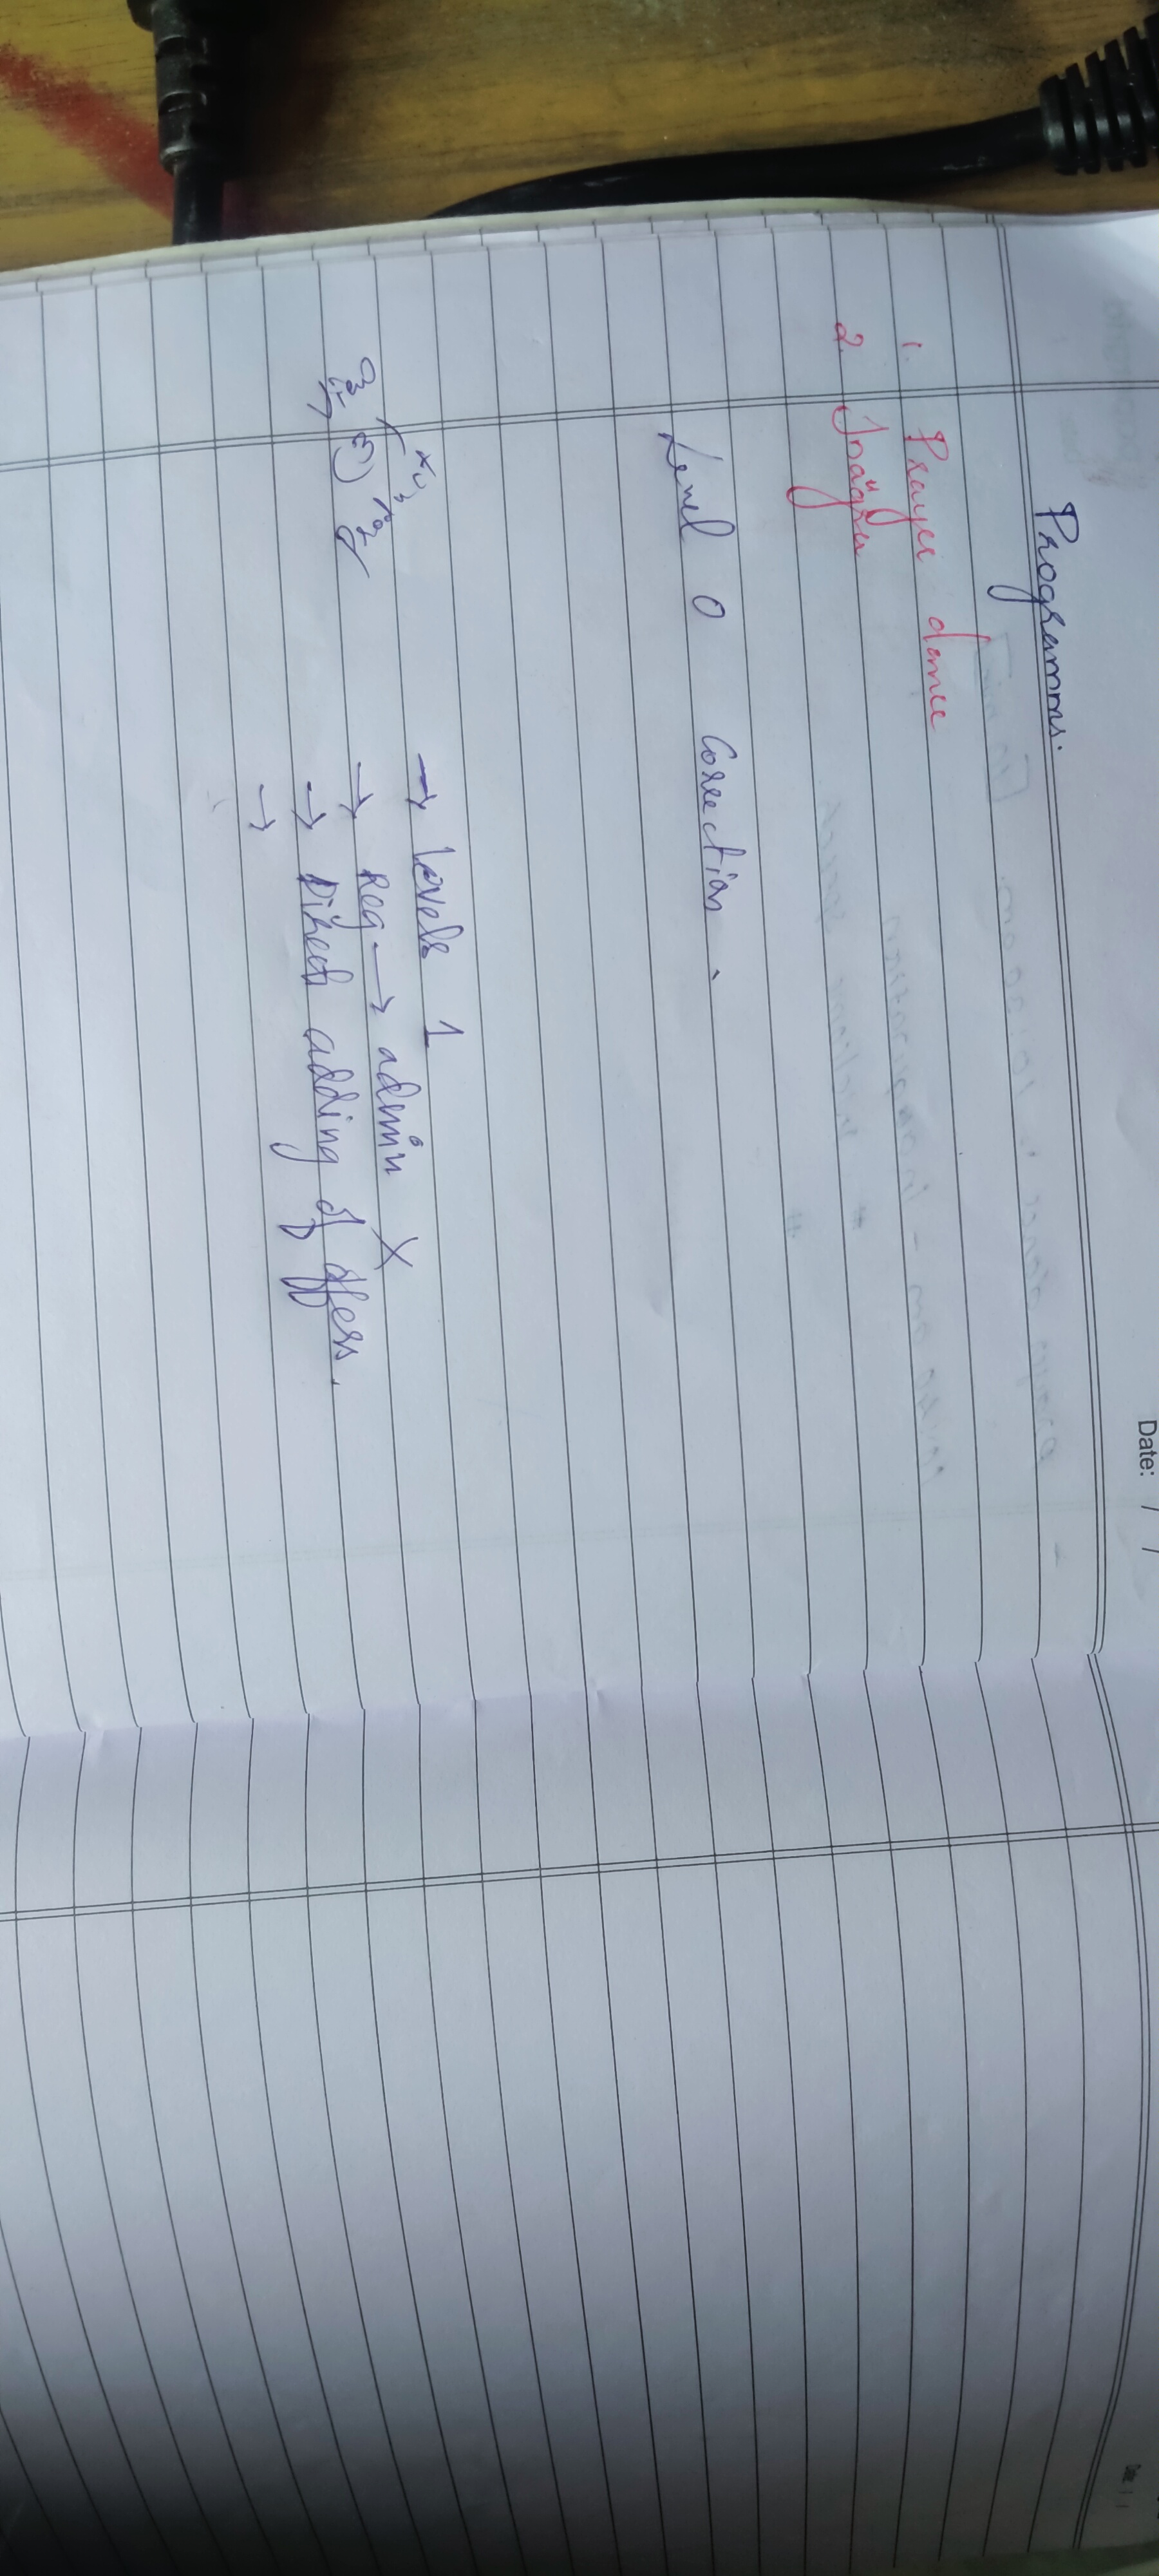 Date: / /
Programms.
1. Prayer dance
2. Inaugra
Level 0 Correction.
→ Levels 1
→ Reg → admin X
→ Direct adding of offers.
→